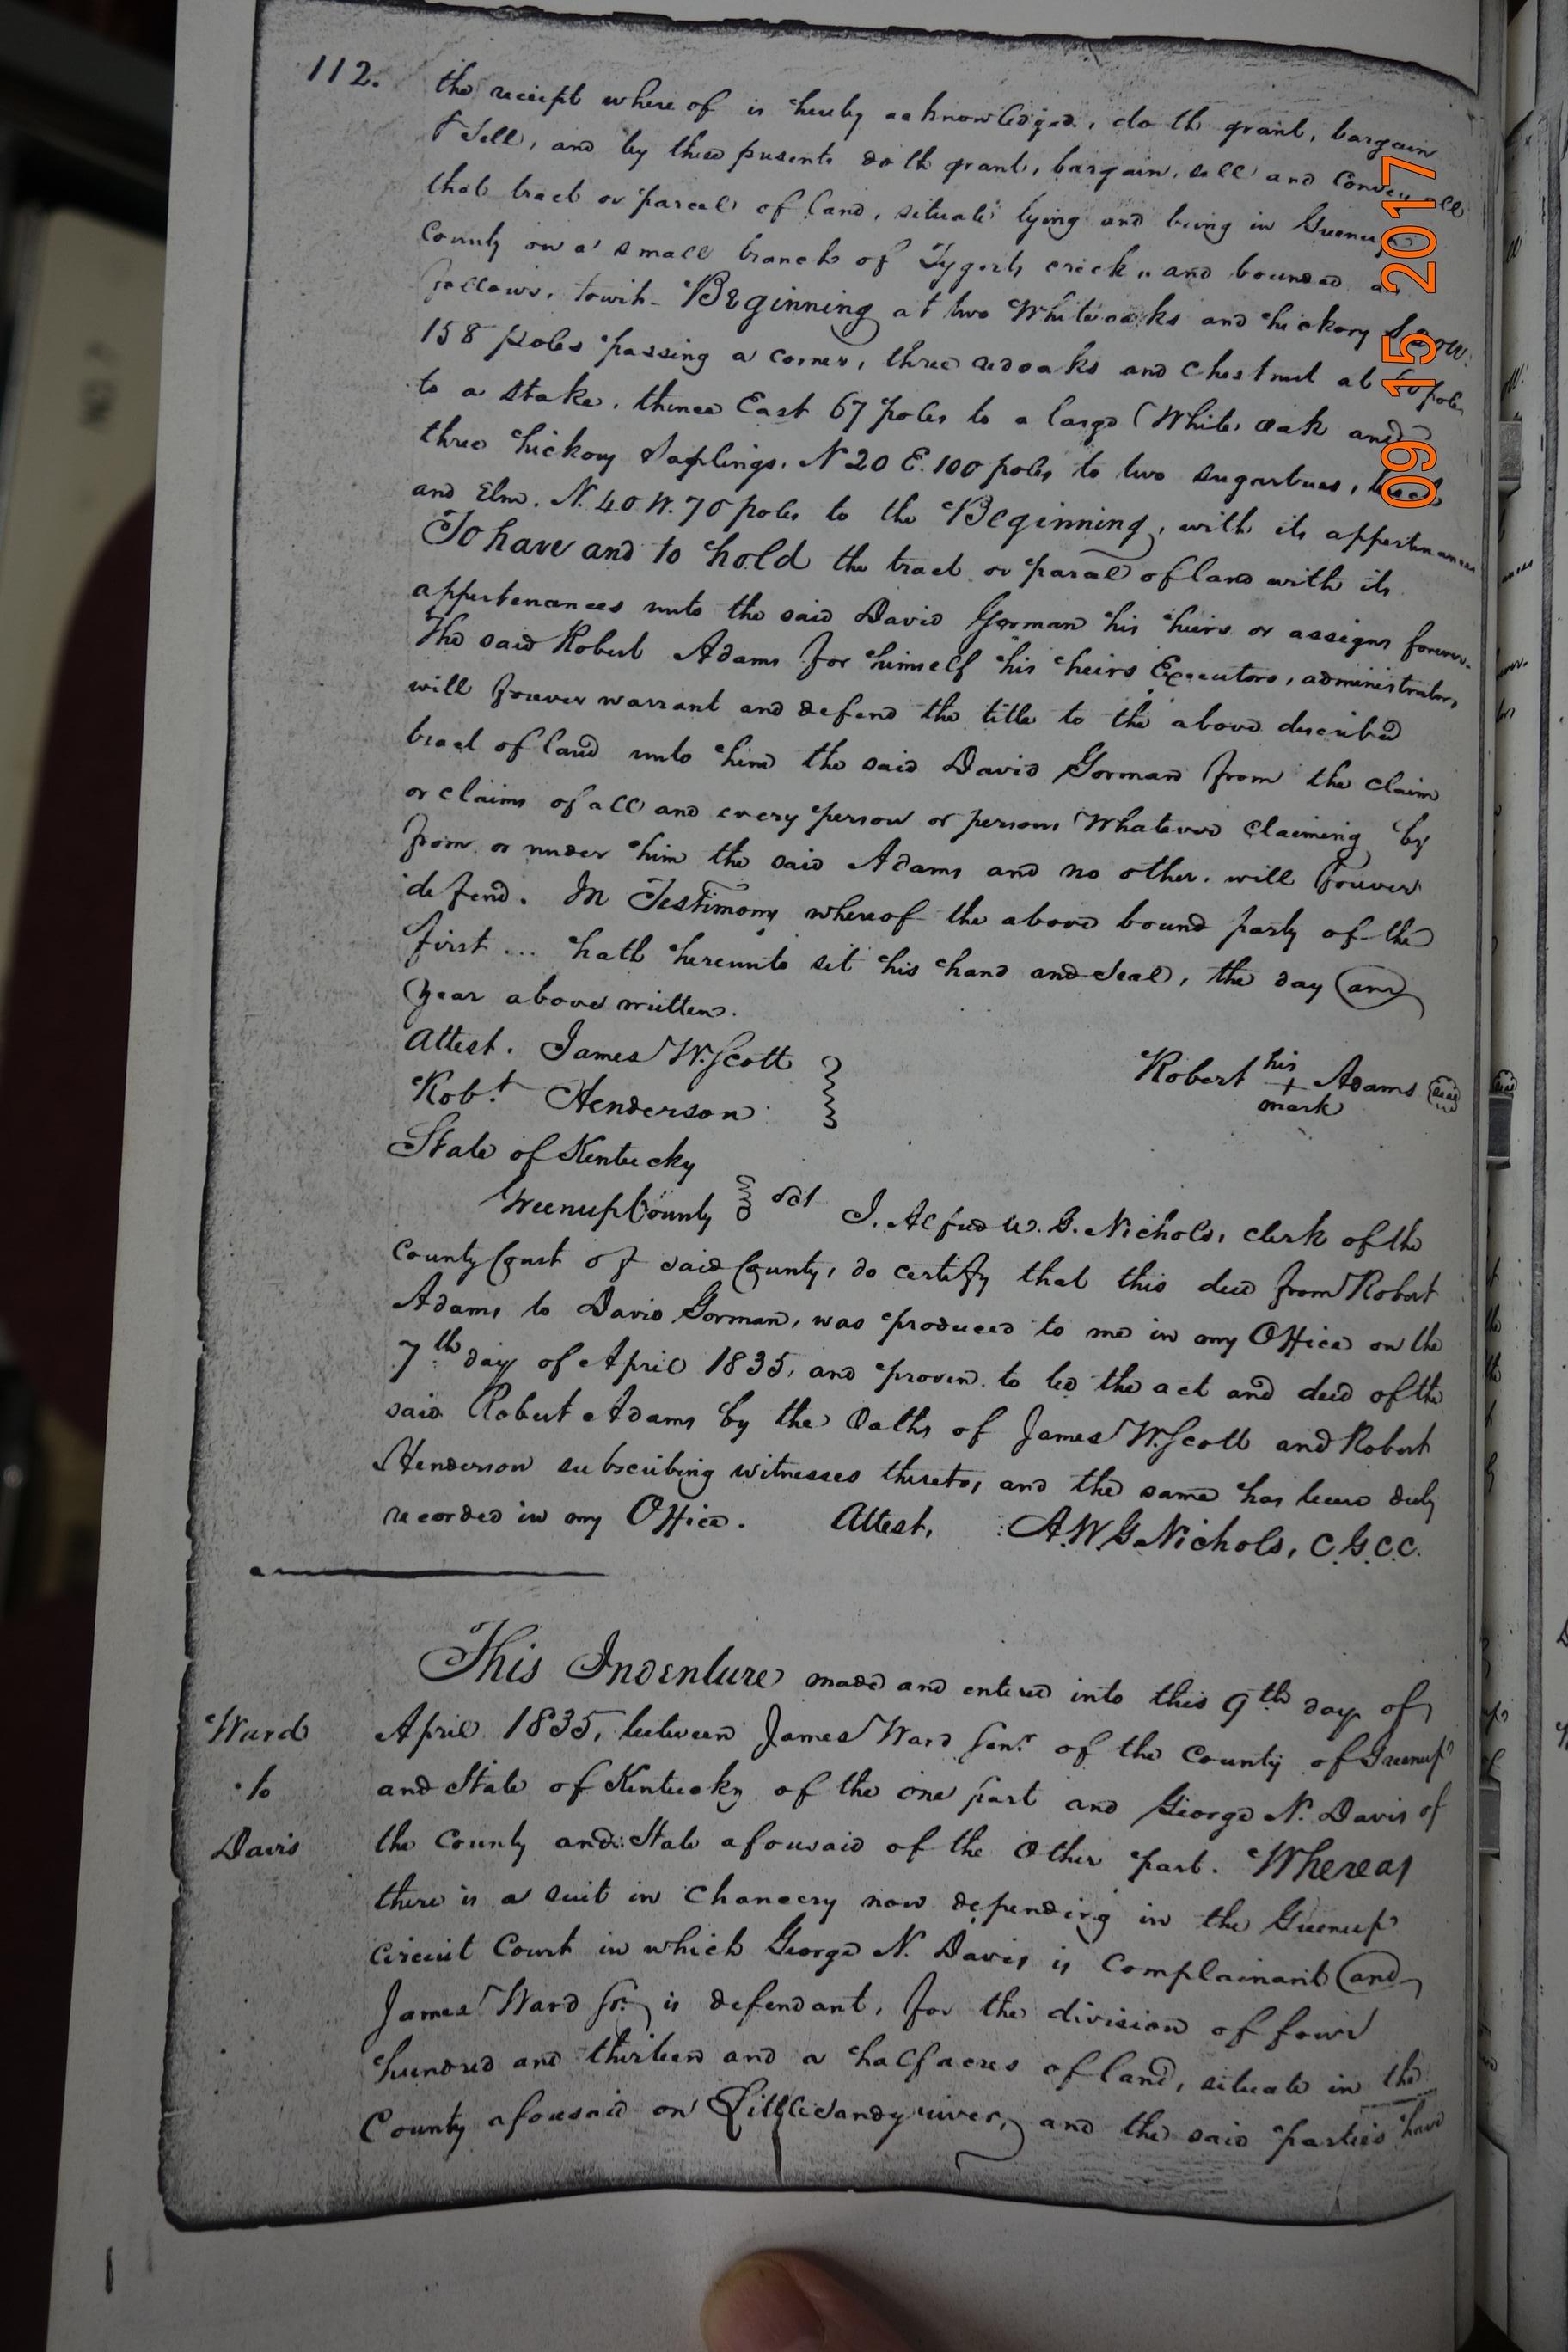 112.
the receipt where of is hereby acknowledged, doth grant, bargain
& Sell, and by these presents doth grant, bargain, sell and convey all
that tract or parcel of land, situate lying and being in Greenup
County on a small branch of Tygerts creek, and bounded as
follows, towit- Beginning at two Whiteoaks and hickory
158 poles passing a corner, three redoaks and Chestnut at poles
to a stake, thence East 67 poles to a large White oak and
three hickory Saplings, N 20 E. 100 poles to two sugartrees,
and Elm. N. 40 W. 70 poles to the Beginning, with its appertenances
To have and to hold the tract or parcel of land with its
appertenances unto the said David Gorman his heirs or assigns forever.
The said Robert Adams for himself his heirs Executors, administrators,
will forever warrant and defend the title to the above described
tract of land unto him the said David Gorman from the claim
or claims of all and every person or persons Whatever claiming by
from or under him the said Adams and no other. will forever
defend. In Testimony whereof the above bound party of the
first ... hath hereunto set his hand and Seal, the day and
year above written.
Attest. James W. Scott
Robt. Henderson
Robert his + mark Adams Seal
State of Kentucky
Greenup County Sct I. Alfred W. G. Nichols, clerk of the
County Court of said County, do certify that this deed from Robert
Adams to David Gorman, was produced to me in my Office on the
7th day of April 1835, and proven to be the act and deed of the
said Robert Adams by the Oaths of James W. Scott and Robert
Henderson subscribing witnesses thereto, and the same has been duly
recorded in my Office. Attest, A. W. G. Nichols, C.G.C.C.
This Indenture made and entered into this 9th day of
Ward
to
Davis
April 1835, between James Ward Senr. of the County of Greenup
and State of Kentucky of the one part and George N. Davis of
the County and State aforesaid of the Other part. Whereas
there is a suit in Chancery now depending in the Greenup
circuit Court in which George N. Davis is Complainant and
James Ward Sr. is defendant, for the division of four
hundred and thirteen and a half acres of land, situate in the
County aforesaid on Little Sandy river, and the said parties have
09 15 2017